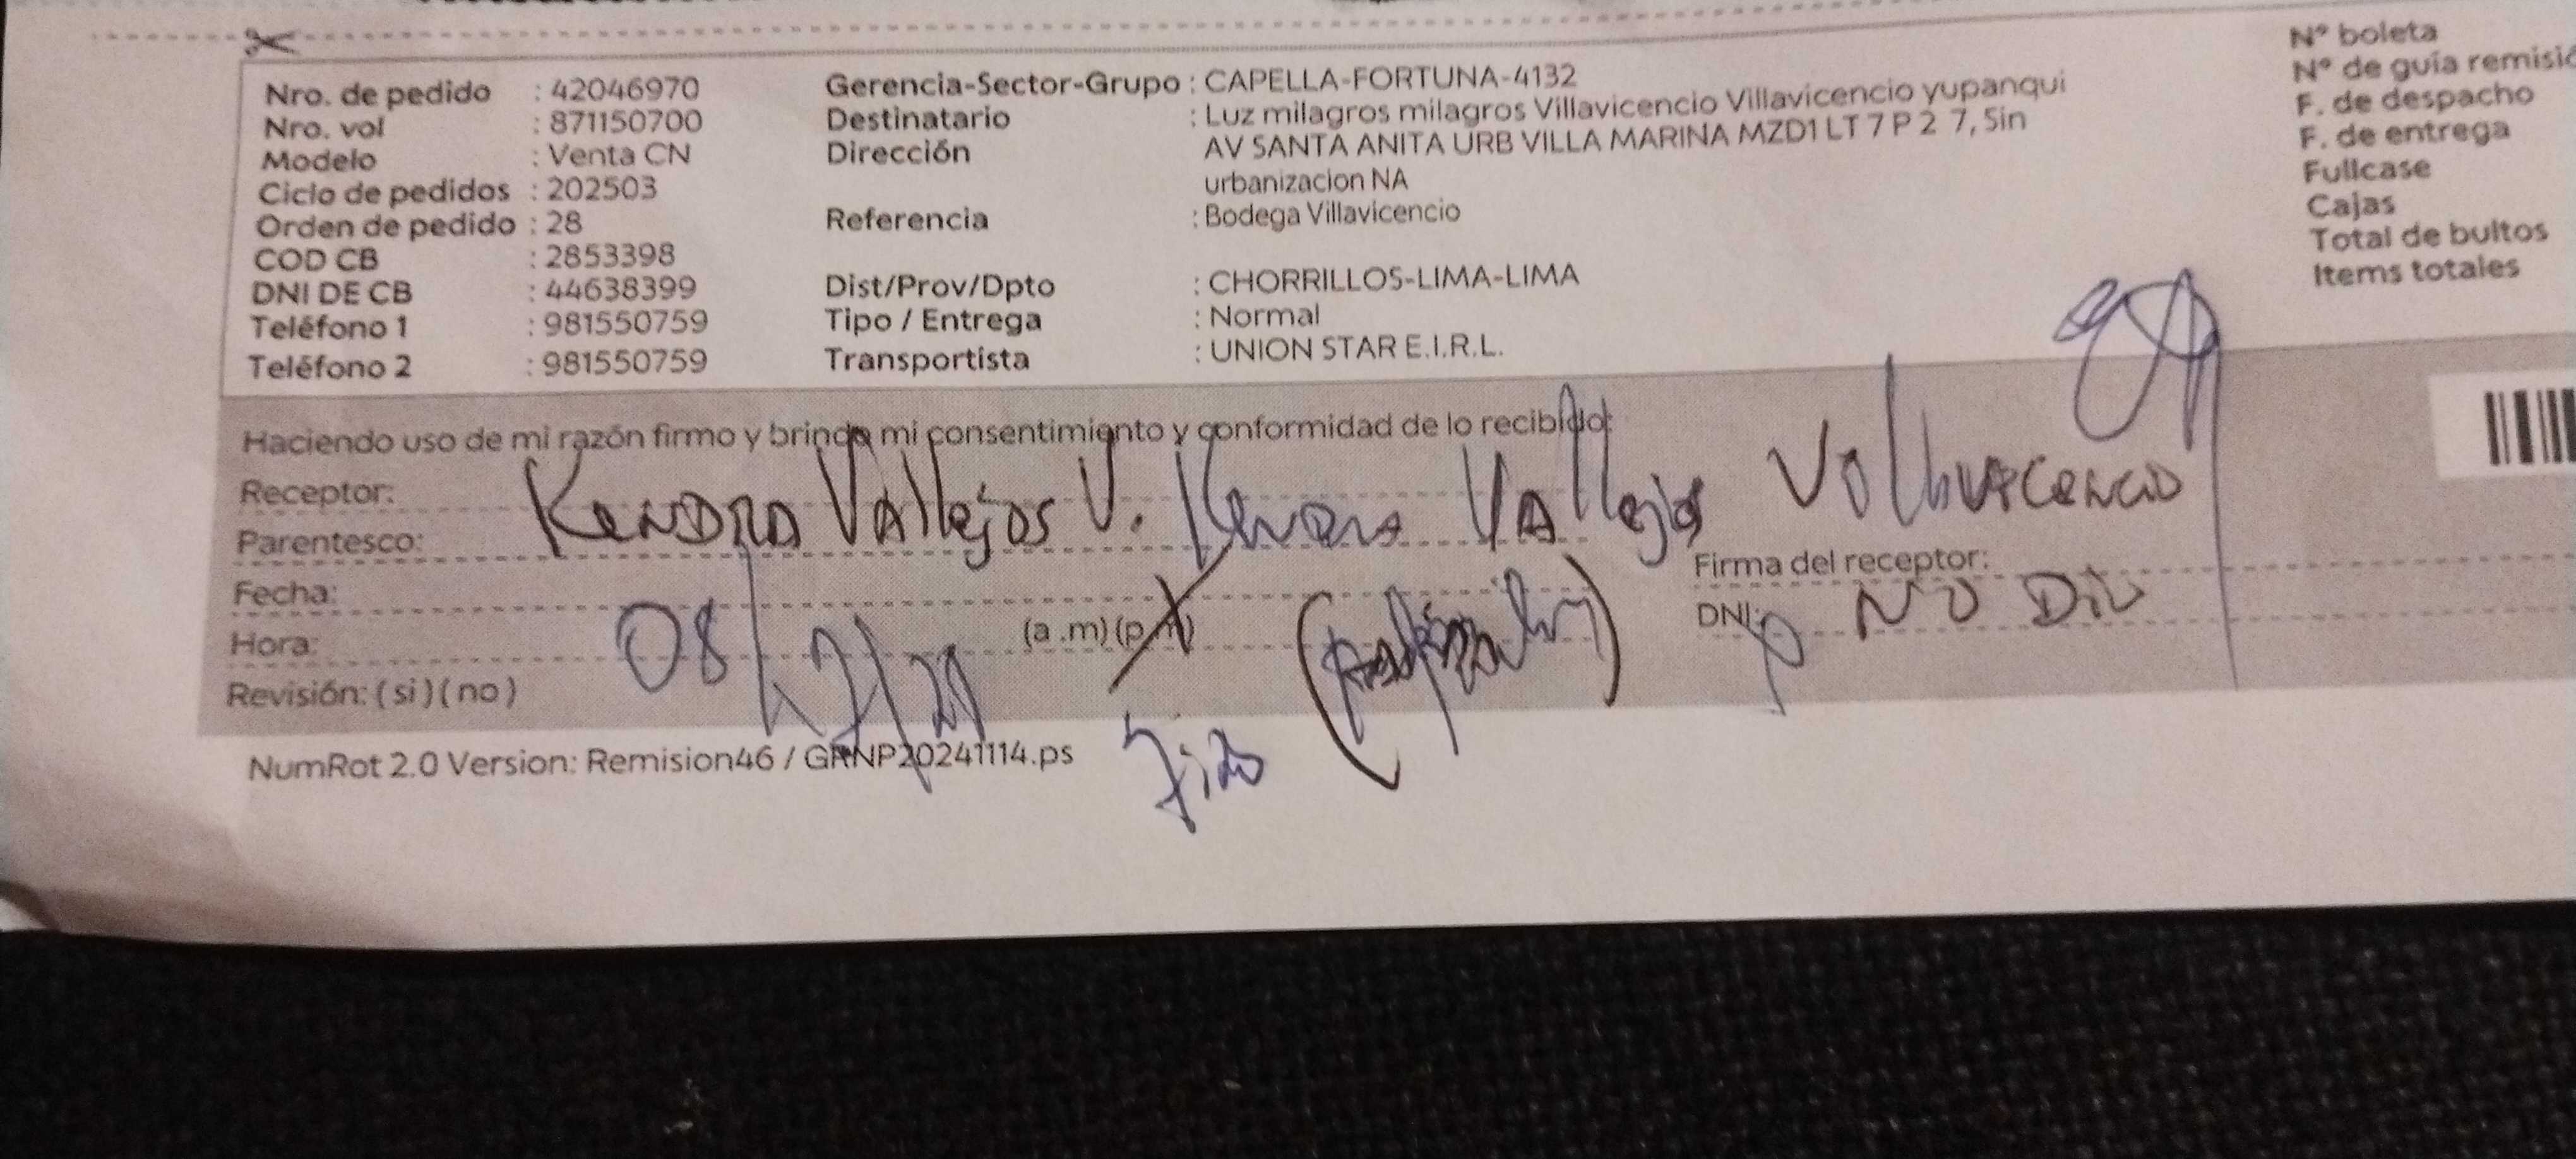 Nro. de pedido : 42046970 Gerencia-Sector-Grupo : CAPELLA-FORTUNA-4132 N° boleta
Nro. vol : 871150700 Destinatario : Luz milagros milagros Villavicencio Villavicencio yupanqui N° de guía remisió
Modelo : Venta CN Dirección AV SANTA ANITA URB VILLA MARINA MZD1 LT 7 P 2 7, Sin F. de despacho
urbanizacion NA F. de entrega
Ciclo de pedidos : 202503 Fullcase
Orden de pedido : 28 Referencia : Bodega Villavicencio Cajas
COD CB : 2853398 Total de bultos
DNI DE CB : 44638399 Dist/Prov/Dpto : CHORRILLOS-LIMA-LIMA Items totales
Teléfono 1 : 981550759 Tipo / Entrega : Normal
Teléfono 2 : 981550759 Transportista : UNION STAR E.I.R.L.
Haciendo uso de mi razón firmo y brindo mi consentimiento y conformidad de lo recibido:
Receptor: Kendra Vallejos V. Vallejos
Parentesco:
Firma del receptor:
Fecha: 08
DNI: NO Dio
Hora: (a .m) (p.m)
Revisión: ( si ) ( no )
NumRot 2.0 Version: Remision46 / GRNP20241114.ps